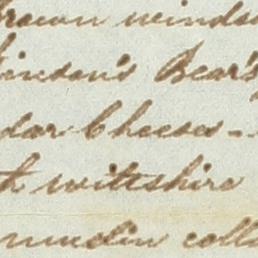 brown winds
kinson's Bear's
dar Cheeses -
th wiltshire
muslin colla